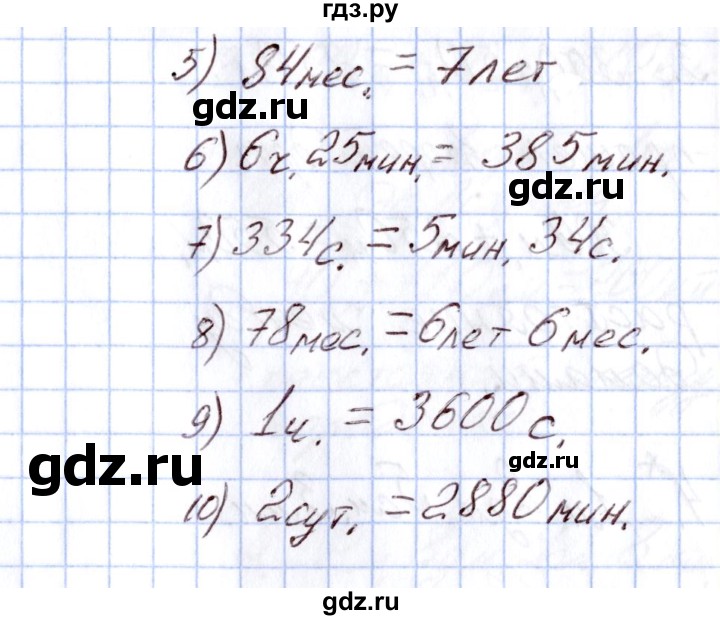 гдз.ру
5) 84 мес. = 7 лет
gdz.ru
6) 6 ч. 25 мин. = 385 мин.
gdz.ru
7) 334 с. = 5 мин. 34 с.
8) 78 мес. = 6 лет 6 мес.
9) 1 ч. = 3600 с.
gdz.ru
gdz.ru
10) 2 сут. = 2880 мин.
gdz.ru